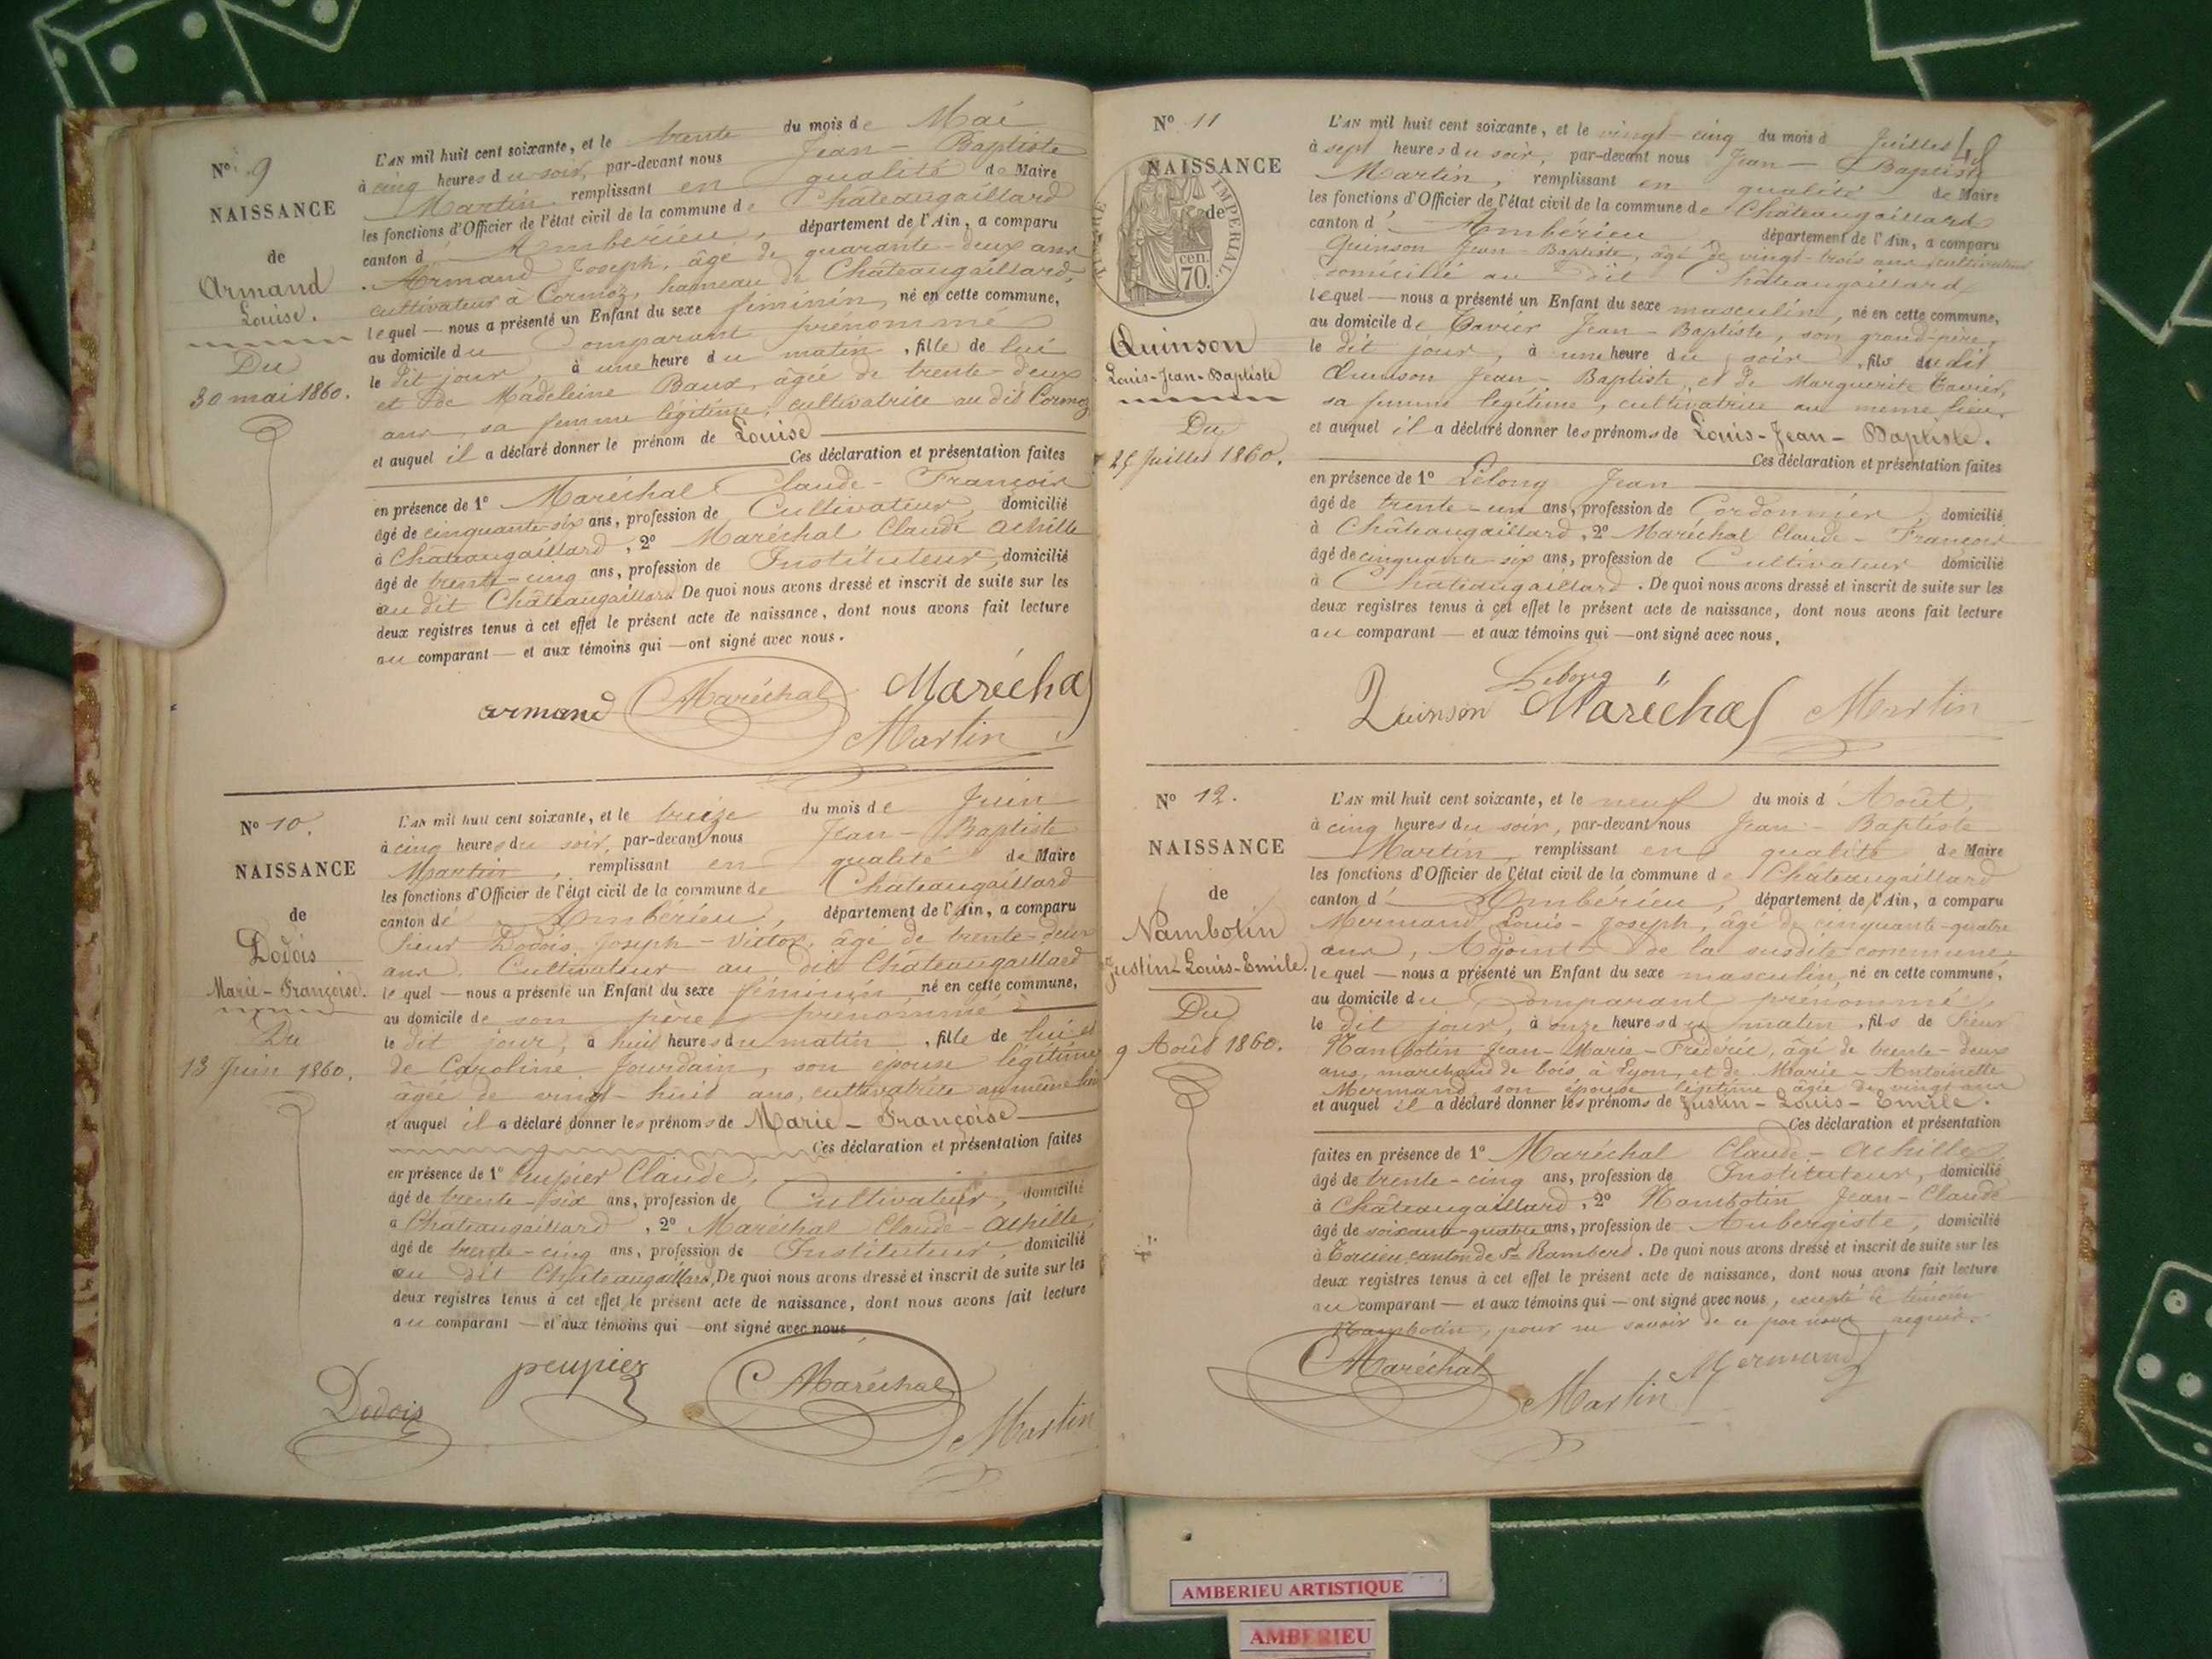 N° 9
NAISSANCE
de
Armand
Louise.
Du
30 mai 1860.
L'AN mil huit cent soixante, et le trente du mois de Mai
à cinq heures du soir, par-devant nous Jean-Baptiste
Martin remplissant en qualité de Maire
les fonctions d'Officier de l'état civil de la commune de Châteaugaillard
canton d'Ambérieu, département de l'Ain, a comparu
Armand Joseph, âgé de quarante-deux ans
cultivateur à Cormoz, hameau de Châteaugaillard,
lequel — nous a présenté un Enfant du sexe féminin, né en cette commune,
au domicile du Comparant prénommé
le dit jour, à une heure du matin, fille de lui
et de Madeleine Baux, âgée de trente-deux
ans, sa femme légitime, cultivatrice au dit Cormoz
et auquel il a déclaré donner le prénom de Louise
Ces déclaration et présentation faites
en présence de 1° Maréchal Claude-François
âgé de cinquante-six ans, profession de Cultivateur, domicilié
à Châteaugaillard, 2° Maréchal Claude Achille
âgé de trente-cinq ans, profession de Instituteur, domicilié
au dit Châteaugaillard. De quoi nous avons dressé et inscrit de suite sur les
deux registres tenus à cet effet le présent acte de naissance, dont nous avons fait lecture
au comparant — et aux témoins qui — ont signé avec nous.
armand Maréchal Maréchal
Martin
N° 10.
NAISSANCE
de
Dodois
Marie-Françoise.
Du
13 Juin 1860.
L'AN mil huit cent soixante, et le treize du mois de Juin
à cinq heures du soir, par-devant nous Jean-Baptiste
Martin, remplissant en qualité de Maire
les fonctions d'Officier de l'état civil de la commune de Châteaugaillard
canton d'Ambérieu, département de l'Ain, a comparu
Sieur Dodois Joseph-Victor, âgé de trente-deux
ans, Cultivateur au dit Châteaugaillard
lequel — nous a présenté un Enfant du sexe féminin, né en cette commune,
au domicile de son père prénommé
le dit jour, à huit heures du matin, fille de lui et
de Caroline Jourdain, son épouse légitime
âgée de vingt-huit ans, cultivatrice au même lieu
et auquel il a déclaré donner les prénoms de Marie-Françoise
Ces déclaration et présentation faites
en présence de 1° Peupier Claude,
âgé de trente-six ans, profession de Cultivateur, domicilié
à Châteaugaillard, 2° Maréchal Claude-Achille,
âgé de trente-cinq ans, profession de Instituteur, domicilié
au dit Châteaugaillard. De quoi nous avons dressé et inscrit de suite sur les
deux registres tenus à cet effet le présent acte de naissance, dont nous avons fait lecture
au comparant — et aux témoins qui — ont signé avec nous
Dodois peupier C Maréchal Martin
N° 11
48
NAISSANCE
de
IMPERIAL.
cen.
70.
Quinson
Louis-Jean-Baptiste
Du
25 Juillet 1860.
L'AN mil huit cent soixante, et le vingt-cinq du mois d Juillet
à sept heures du soir, par-devant nous Jean-Baptiste
Martin, remplissant en qualité de Maire
les fonctions d'Officier de l'état civil de la commune de Châteaugaillard
canton d'Ambérieu département de l'Ain, a comparu
Quinson Jean-Baptiste, âgé de vingt-trois ans, cultivateur
domicilié au dit Châteaugaillard
lequel — nous a présenté un Enfant du sexe masculin, né en cette commune,
au domicile de Tavier Jean-Baptiste, son grand-père,
le dit jour, à une heure du soir, fils dudit
Quinson Jean-Baptiste, et de Marguerite Tavier,
sa femme légitime, cultivatrice au même lieu,
et auquel il a déclaré donner les prénoms de Louis-Jean-Baptiste.
Ces déclaration et présentation faites
en présence de 1° Lelong Jean
âgé de trente-un ans, profession de Cordonnier, domicilié
à Châteaugaillard, 2° Maréchal Claude-François
âgé de cinquante six ans, profession de Cultivateur domicilié
à Châteaugaillard. De quoi nous avons dressé et inscrit de suite sur les
deux registres tenus à cet effet le présent acte de naissance, dont nous avons fait lecture
au comparant — et aux témoins qui — ont signé avec nous.
Lelong
Quinson Maréchal Martin
N° 12.
NAISSANCE
de
Nambotin
Justin-Louis-Emile.
Du
9 Août 1860.
L'AN mil huit cent soixante, et le neuf du mois d'Août,
à cinq heures du soir, par-devant nous Jean-Baptiste
Martin, remplissant en qualité de Maire
les fonctions d'Officier de l'état civil de la commune de Châteaugaillard
canton d'Ambérieu, département de l'Ain, a comparu
Mermand Louis-Joseph, âgé de cinquante-quatre
ans, Adjoint de la susdite commune
lequel — nous a présenté un Enfant du sexe masculin, né en cette commune,
au domicile du Comparant prénommé,
le dit jour, à onze heures du matin, fils de Sieur
Nambotin Jean-Marie-Frédéric, âgé de trente-deux
ans, marchand de bois à Lyon, et de Marie-Antoinette
Mermand son épouse légitime âgée de vingt ans
et auquel il a déclaré donner les prénoms de Justin-Louis-Emile.
Ces déclaration et présentation
faites en présence de 1° Maréchal Claude-Achille
âgé de trente-cinq ans, profession de Instituteur, domicilié
à Châteaugaillard, 2° Nambotin Jean-Claude
âgé de soixante-quatre ans, profession de Aubergiste, domicilié
à Torcieu canton de St Rambert. De quoi nous avons dressé et inscrit de suite sur les
deux registres tenus à cet effet le présent acte de naissance, dont nous avons fait lecture
au comparant — et aux témoins qui — ont signé avec nous, excepté le témoin
Nambotin, pour ne savoir de ce par nous requis.
C Maréchal Martin Mermand
AMBERIEU ARTISTIQUE
AMBERIEU